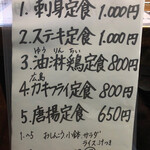 1. 刺身定食 1.000円
2. ステキ定食 1.000円
ゆうりんちい
3. 油淋鶏定食 800円
広島
4 カキフライ定食 800円
5. 唐揚定食 650円
1.~5 おしんこ、小鉢、サラダ
ライス、みそ汁つき